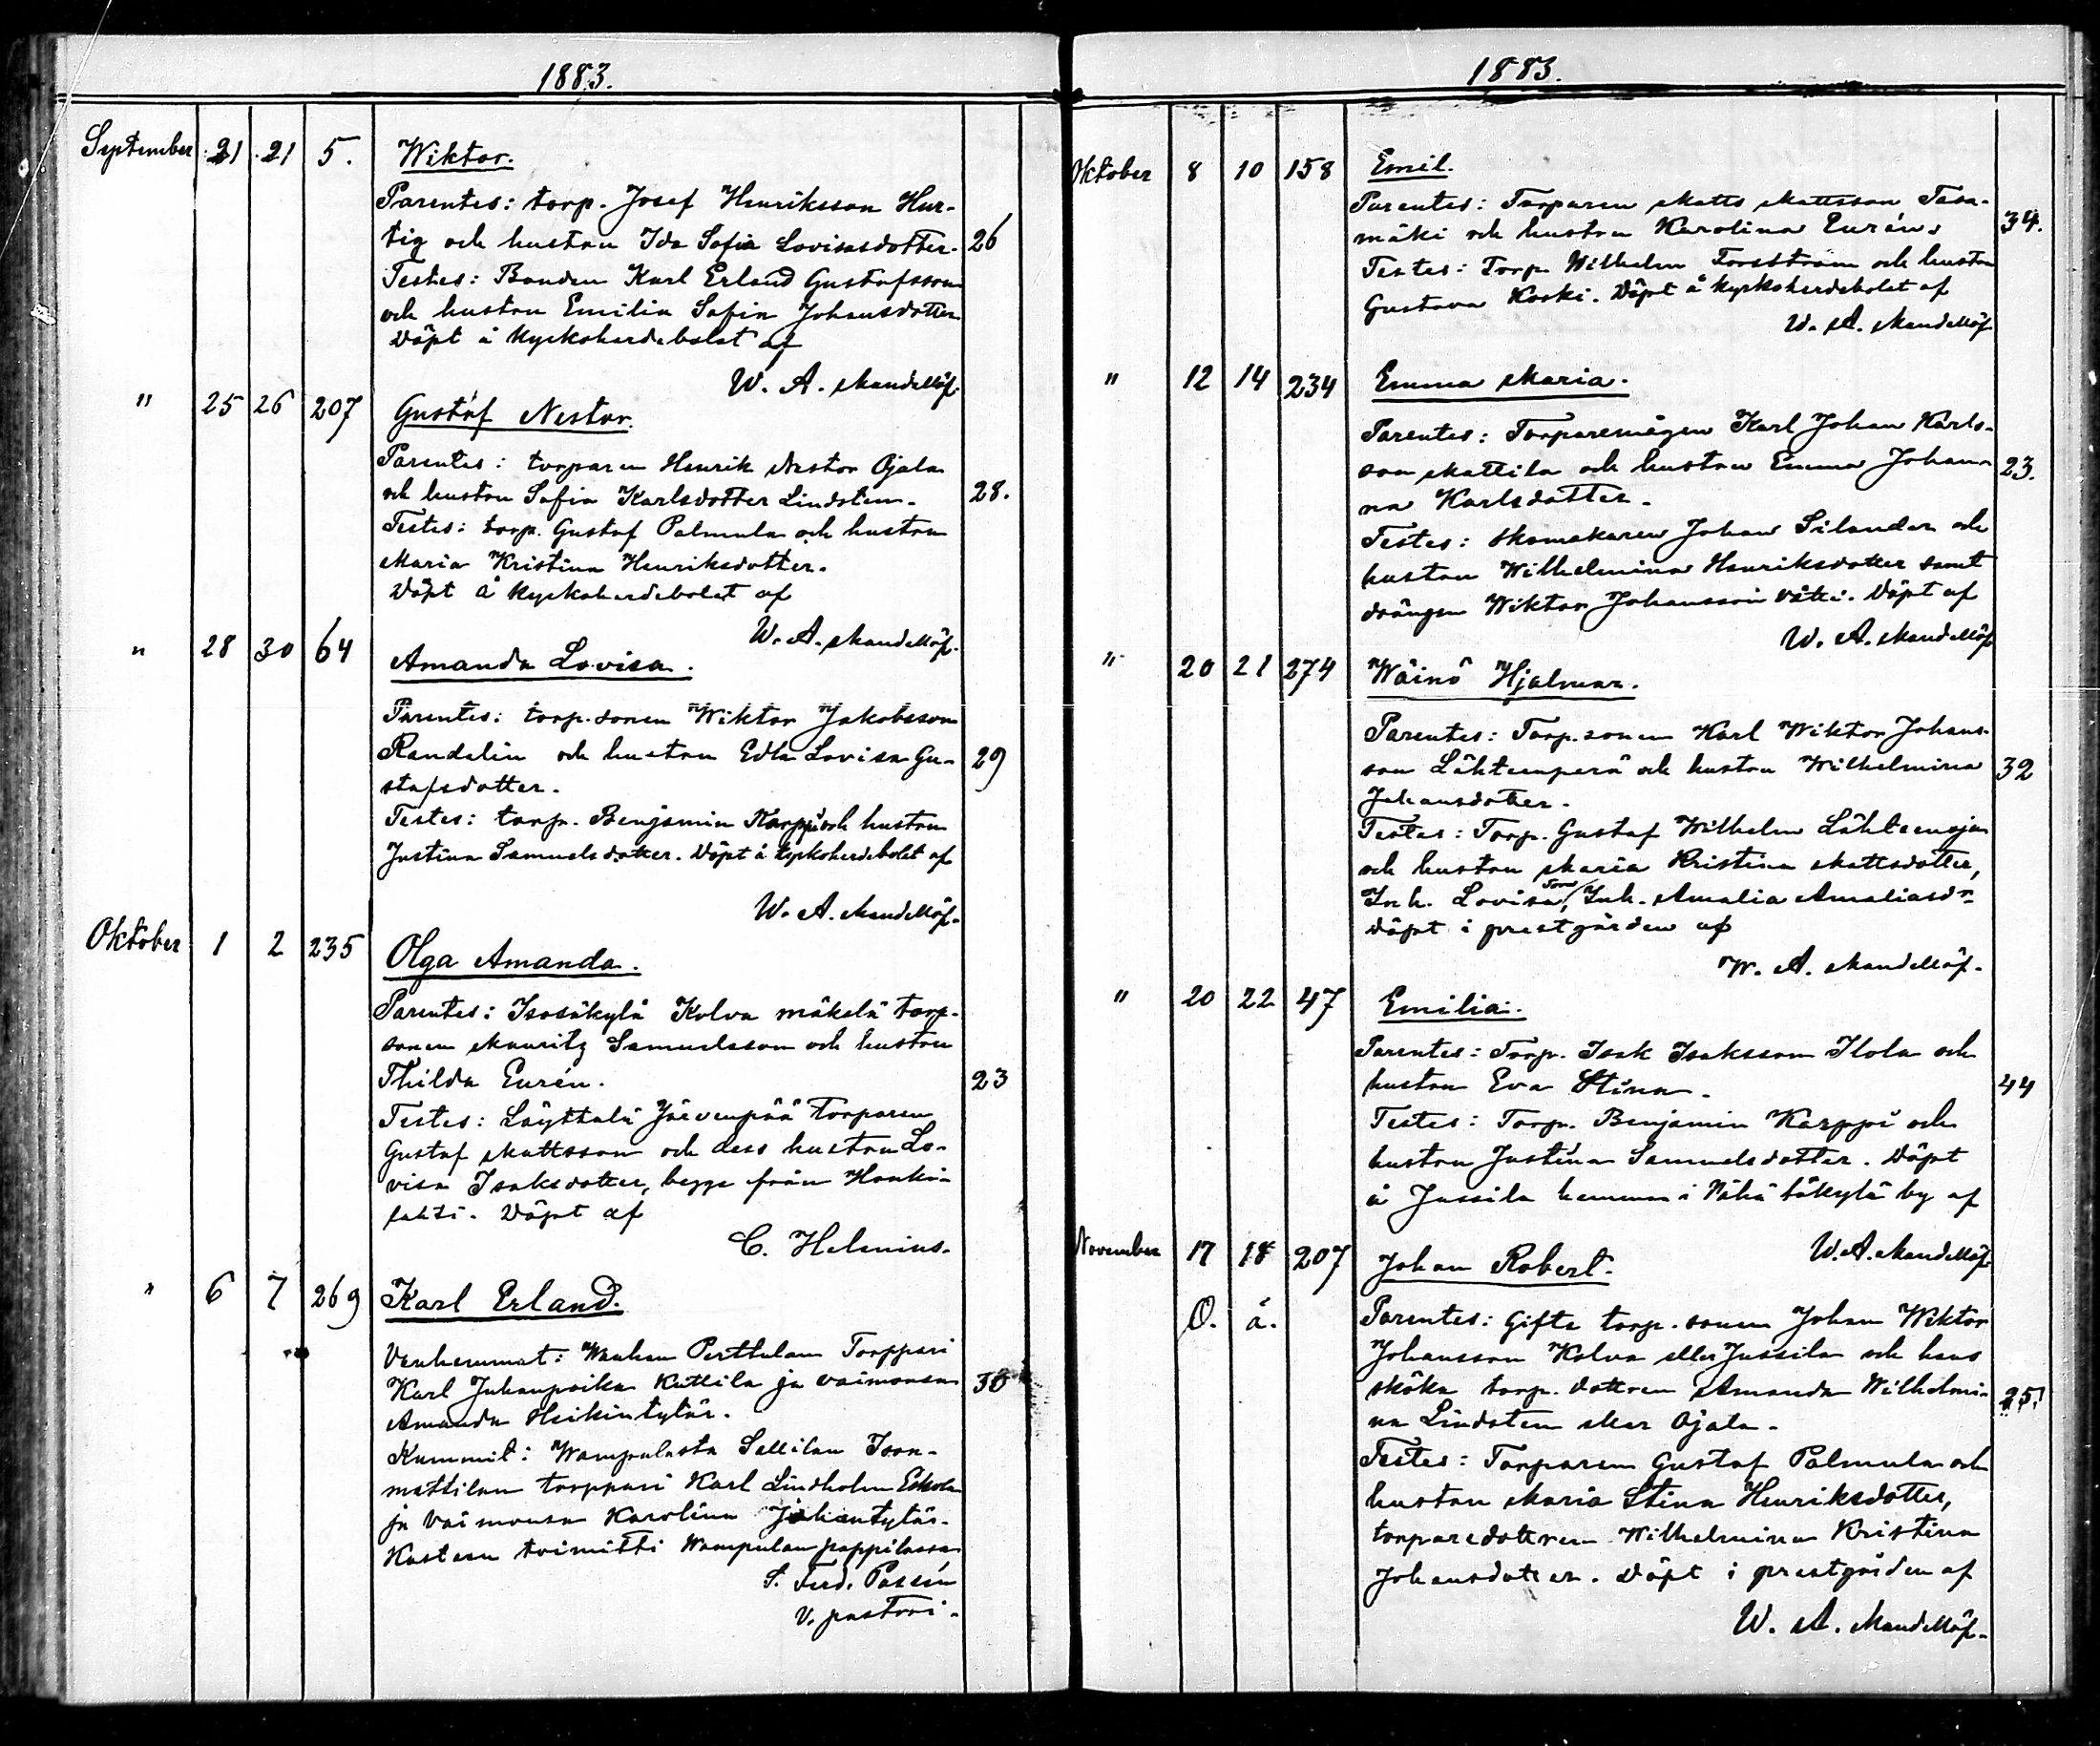 1883.
September 21 21 5. Wiktor.
Parentes: torp. Josef Henriksson Hur-
tig och hustru Ida Sofia Lovisasdotter. 26
Testes: Bonden Karl Erland Gustafsson
och hustru Emilia Sofia Johansdotter.
Döpt å Kyrkoherdebolet af
W. A. Mandellöf.
" 25 26 207 Gustaf Nestor.
Parentes: torparen Henrik Nestor Ojala
och hustru Sofia Karlsdotter Lindsten. 28.
Testes: torp. Gustaf Palmula och hustru
Maria Kristina Henriksdotter.
Döpt å Kyrkoherdebolet af
W. A. Mandellöf.
" 28 30 64 Amanda Lovisa.
Parentes: torp.sonen Wiktor Jakobsson
Randelin och hustru Edla Lovisa Gu- 29
stafsdotter.
Testes: torp. Benjamin Karppi och hustru
Justina Samuelsdotter. Döpt å kyrkoherdebolet af
W. A. Mandellöf.
Oktober 1 2 235 Olga Amanda.
Parentes: Isosäkylä Kolva mäkelä torp-
sonen Mauritz Samuelsson och hustru
Thilda Eurén. 23
Testes: Löyttälä Järvenpää Torparen
Gustaf Mattsson och dess hustru Lo-
visa Isaksdotter, begge från Honki-
lahti. Döpt af
C. Helenius.
" 6 7 269 Karl Erland.
Vanhemmat: Wanhan Perttulan Torppari
Karl Juhanpoika Kuttila ja vaimonsa 30
Amanda Heikintytär.
Kummit: Wampulasta Sallilan Ison-
mattilan torppari Karl Lindholm Eskola
ja vaimonsa Karolina Johantytär.
Kasteen toimitti Wampulan pappilassa
S. Ferd. Passén
v. pastori.
1883.
Oktober 8 10 158 Emil.
Parentes: Torparen Matts Mattsson Tasa-
mäki och hustru Karolina Eurén. 34.
Testes: Torp. Wilhelm Forsström och hustru
Gustava Koski. Döpt å kyrkoherdebolet af
W. A. Mandellöf.
" 12 14 234 Emma Maria.
Parentes: Torparemågen Karl Johan Karls-
son Mattila och hustru Emma Johan- 23.
na Karlsdotter.
Testes: Skomakaren Johan Silander och
hustru Wilhelmina Henriksdotter samt
drängen Wiktor Johansson Döpt af
W. A. Mandellöf.
" 20 21 274 Wäinö Hjalmar.
Parentes: Torp.sonen Karl Wiktor Johans-
son Lähteenperä och hustru Wilhelmina 32
Johansdotter.
Testes: Torp. Gustaf Wilhelm Lähteenoja
och hustru Maria Kristina Mattsdotter,
Inh. Lovisa, Inh. Amalia Amaliasdr
döpt i prestgården af
W. A. Mandellöf.
" 20 22 47 Emilia.
Parentes: Torp. Isak Isaksson Ilola och
hustru Eva Stina. 44
Testes: Torp. Benjamin Karppi och
hustru Justina Samuelsdotter. Döpt
å Jussila hemman i Vähä säkylä by af
W. A. Mandellöf.
November 17 18 207 Johan Robert.
O. ä. Parentes: Gifte torp.sonen Johan Wiktor
Johansson Kolva eller Jussila och hans
sköka torp.dottren Amanda Wilhelmi- 25.
na Lindsten eller Ojala.
Testes: Torparen Gustaf Palmula och
hustru Maria Stina Henriksdotter,
torparedottren Wilhelmina Kristina
Johansdotter. Döpt i prestgården af
W. A. Mandellöf.